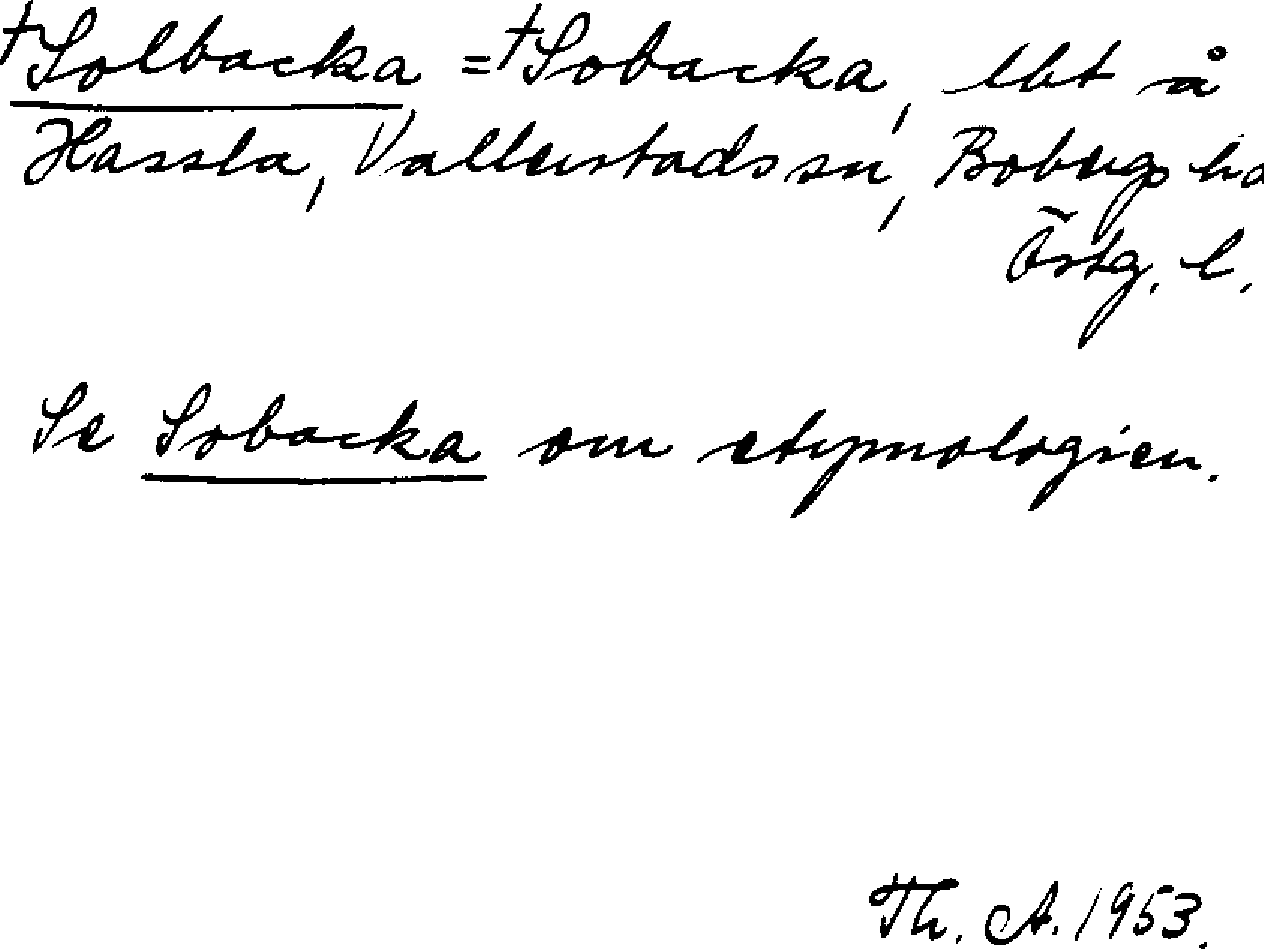 †Solbacka = †Sobacka, lbt å
Hassla, Vallerstads sn, Bobergs hd
Östg. l.
Se Sobacka om etymologien.
Th. A. 1953.